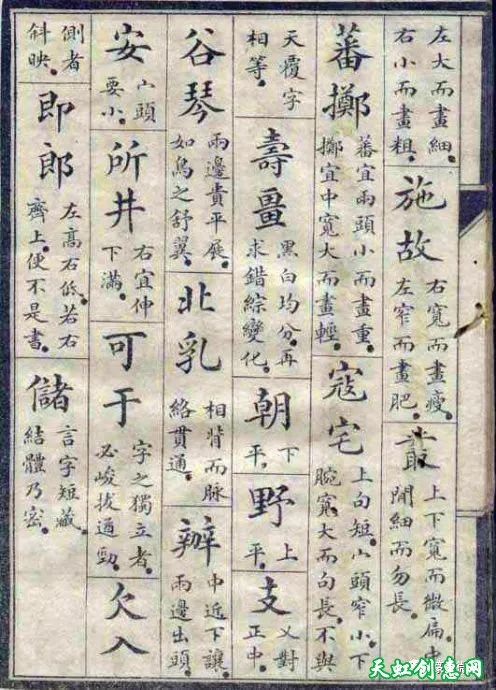 左大而畫細。
右小而畫粗。
施故
右寬而畫瘦。
左窄而畫肥。
叢
上下寬而微扁。中
間細而勿長。
蕃擲
蕃宜兩頭小而畫重。
擲宜中寬大而畫輕。
寇宅
上句短。宀頭窄小。下
腕寬大而句長。不與
天覆字
相等。
壽畺
黑白均分。再
求錯綜變化。
朝
下
平。
野
上
平。
支
乂對
正中。
谷琴
兩邊貴平展。
如鳥之舒翼。
北乳
相背而脈
絡貫通。
辦
中近下讓
兩邊出頭。
安
宀頭
要小。
所井
右宜伸
下滿。
可于
字之獨立者。
必峻拔遒勁。
欠入
側者
斜映。
即郎
左高右低。若右
齊上。便不是書。
儲
言字短藏。
結體乃密。
天虹创意网